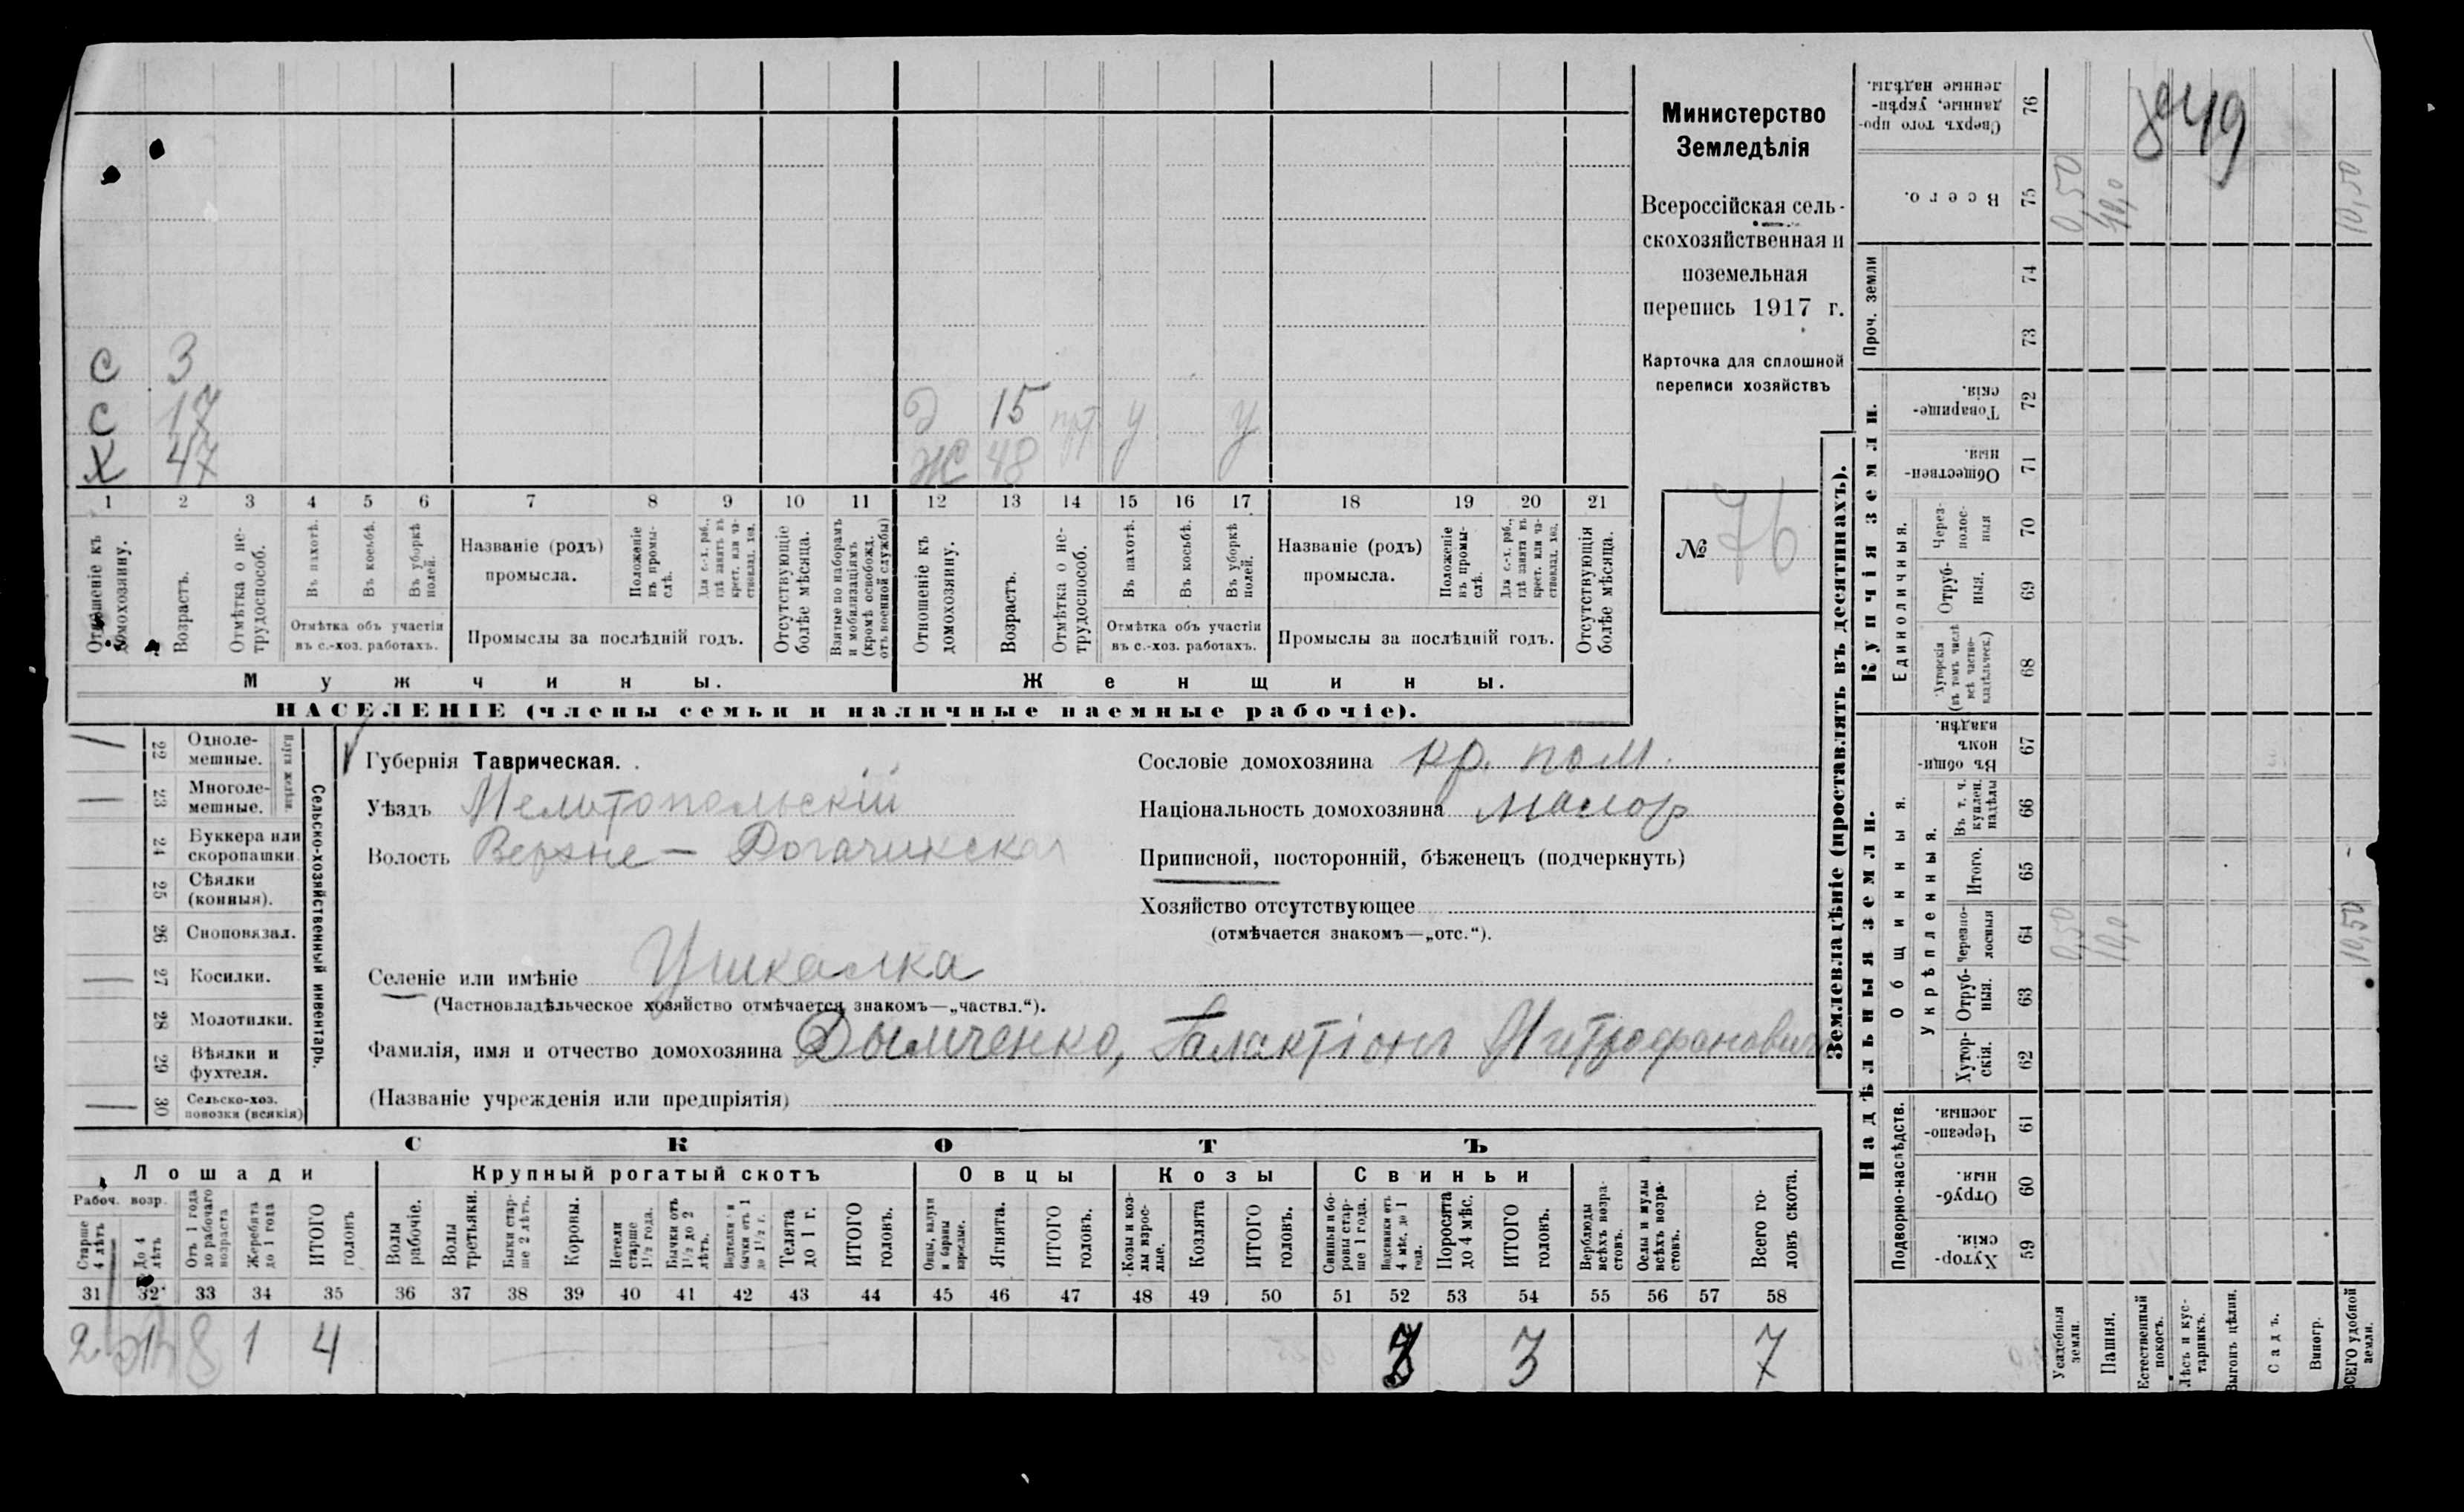 Министерство
Земледѣлія
Всероссійская сель-
скохозяйственная и
поземельная
перепись 1917 г.
Карточка для сплошной
переписи хозяйствъ
№ 76
С 3
С 17
Д 15 У У
Х 47
Ж 48
1 2 3 4 5 6 7 8 9 10 11 12 13 14 15 16 17 18 19 20 21
Отношеніе къ домохозяину.
Возрастъ.
Отмѣтка о не-трудоспособ.
Въ пахотѣ.
Въ косьбѣ.
Въ уборкѣ полей.
Отмѣтка объ участіи
въ с.-хоз. работахъ.
Названіе (родъ)
промысла.
Положеніе въ промы-слѣ.
Для с.-х. раб., гдѣ занятъ въ крест. или ча-стновлад. хоз.
Промыслы за послѣдній годъ.
Отсутствующіе болѣе мѣсяца.
Взятые по наборамъ и мобилизаціямъ (кромѣ освобожд. отъ военной службы)
Отношеніе къ домохозяину.
Возрастъ.
Отмѣтка о не-трудоспособ.
Въ пахотѣ.
Въ косьбѣ.
Въ уборкѣ полей.
Отмѣтка объ участіи
въ с.-хоз. работахъ.
Названіе (родъ)
промысла.
Положеніе въ промы-слѣ.
Для с.-х. раб., гдѣ занята въ крест. или ча-стновлад. хоз.
Промыслы за послѣдній годъ.
Отсутствующія болѣе мѣсяца.
Мужчины.
Женщины.
НАСЕЛЕНІЕ (члены семьи и наличные наемные рабочіе).
Сельско-хозяйственный инвентарь.
22 Одноле-мешные.
23 Многоле-мешные.
24 Буккера или скоропашки.
25 Сѣялки (конныя).
26 Сноповязал.
27 Косилки.
28 Молотилки.
29 Вѣялки и фухтеля.
30 Сельско-хоз. повозки (всякія)
Губернія Таврическая.
Уѣздъ Мелитопольскій
Волость Верхне-Рогачикская
Селеніе или имѣніе Ушкалка
(Частновладѣльческое хозяйство отмѣчается знакомъ—„частвл.“).
Фамилія, имя и отчество домохозяина Дымченко, Галактіонъ Митрофановичъ
(Названіе учрежденія или предпріятія)
Сословіе домохозяина кр. пом.
Національность домохозяина малор
Приписной, посторонній, бѣженецъ (подчеркнуть)
Хозяйство отсутствующее
(отмѣчается знакомъ—„отс.“).
СКОТЪ
Лошади
Крупный рогатый скотъ
Овцы
Козы
Свиньи
Рабоч. возр.
Старше 4 лѣтъ
До 4 лѣтъ
Отъ 1 года до рабочаго возраста
Жеребята до 1 года
ИТОГО головъ
Волы рабочіе.
Волы третьяки.
Быки стар-ше 2 лѣтъ.
Коровы.
Нетели старше 1½ года.
Бычки отъ 1½ до 2 лѣтъ.
Телята до 1 г.
ИТОГО головъ.
Овцы, валухи и бараны взрослые.
Ягнята.
ИТОГО головъ.
Козы и коз-лы взрос-лые.
Козлята
ИТОГО головъ.
Свиньи и бо-ровы стар-ше 1 года.
Подсвинки отъ 4 мѣс. до 1 года.
Поросята до 4 мѣс.
ИТОГО головъ.
Верблюды всѣхъ возра-стовъ.
Ослы и мулы всѣхъ возра-стовъ.
Всего го-ловъ скота.
31 32 33 34 35 36 37 38 39 40 41 42 43 44 45 46 47 48 49 50 51 52 53 54 55 56 57 58
2 1 4 3 3 7
Землевладѣніе (проставлять въ десятинахъ).
Купчія земли.
Надѣльныя земли.
Проч. земли
Единоличныя.
Общинныя.
Укрѣпленныя.
Подворно-наслѣдств.
Сверхъ того про-данные, укрѣп-ленные надѣлы. 76
Всего. 75 0,50 10,50
74
73
Товарище-скія. 72
Обществен-ныя. 71
Через-полос-ныя 70
Отруб-ныя. 69
Хуторскія (въ томъ числѣ всѣ частно-владѣльческ.) 68
Въ общи-номъ владѣн. 67
Въ т. ч. куплен. надѣлы 66
Итого. 65
Черезпо-лосныя 64 0,50 10,0 10,50
Отруб-ныя. 63
Хутор-скія. 62
Черезпо-лосныя. 61
Отруб-ныя. 60
Хутор-скія. 59
Усадебныя земли.
Пашня.
Естественный покосъ.
Лѣсъ и кус-тарникъ.
Выгонъ цѣлин.
Садъ.
Виногр.
ВСЕГО удобной земли.